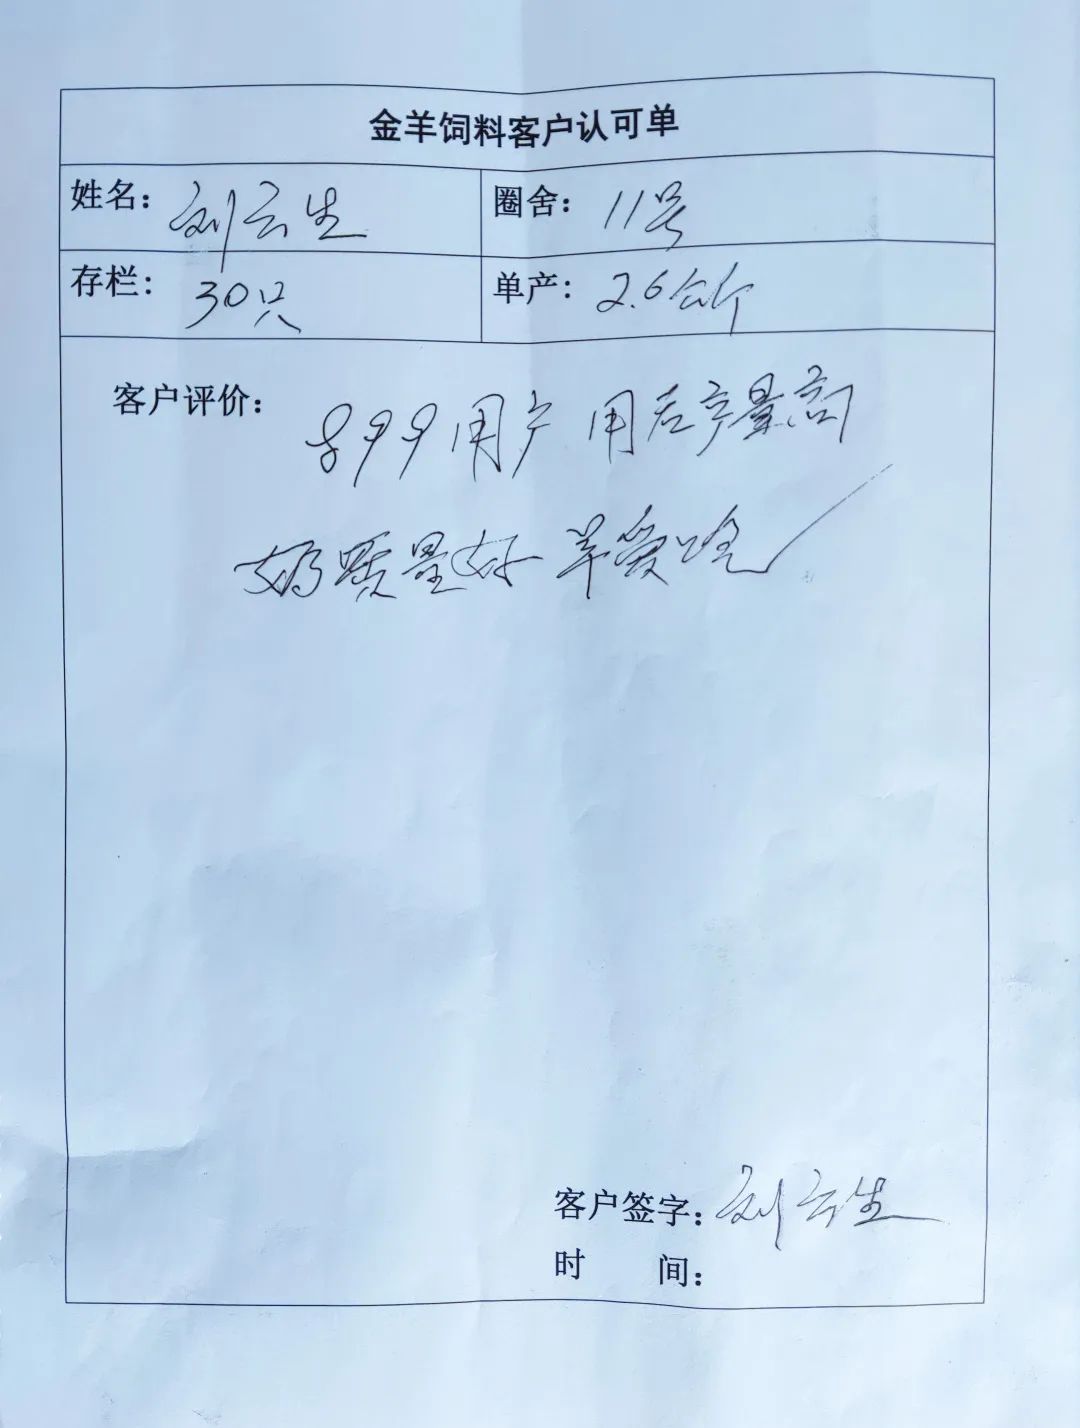 金羊饲料客户认可单
姓名：刘云生 圈舍：11号
存栏：30只 单产：2.6公斤
客户评价：899用户 用后产量高
奶质量好 羊爱吃
客户签字：刘云生
时 间：